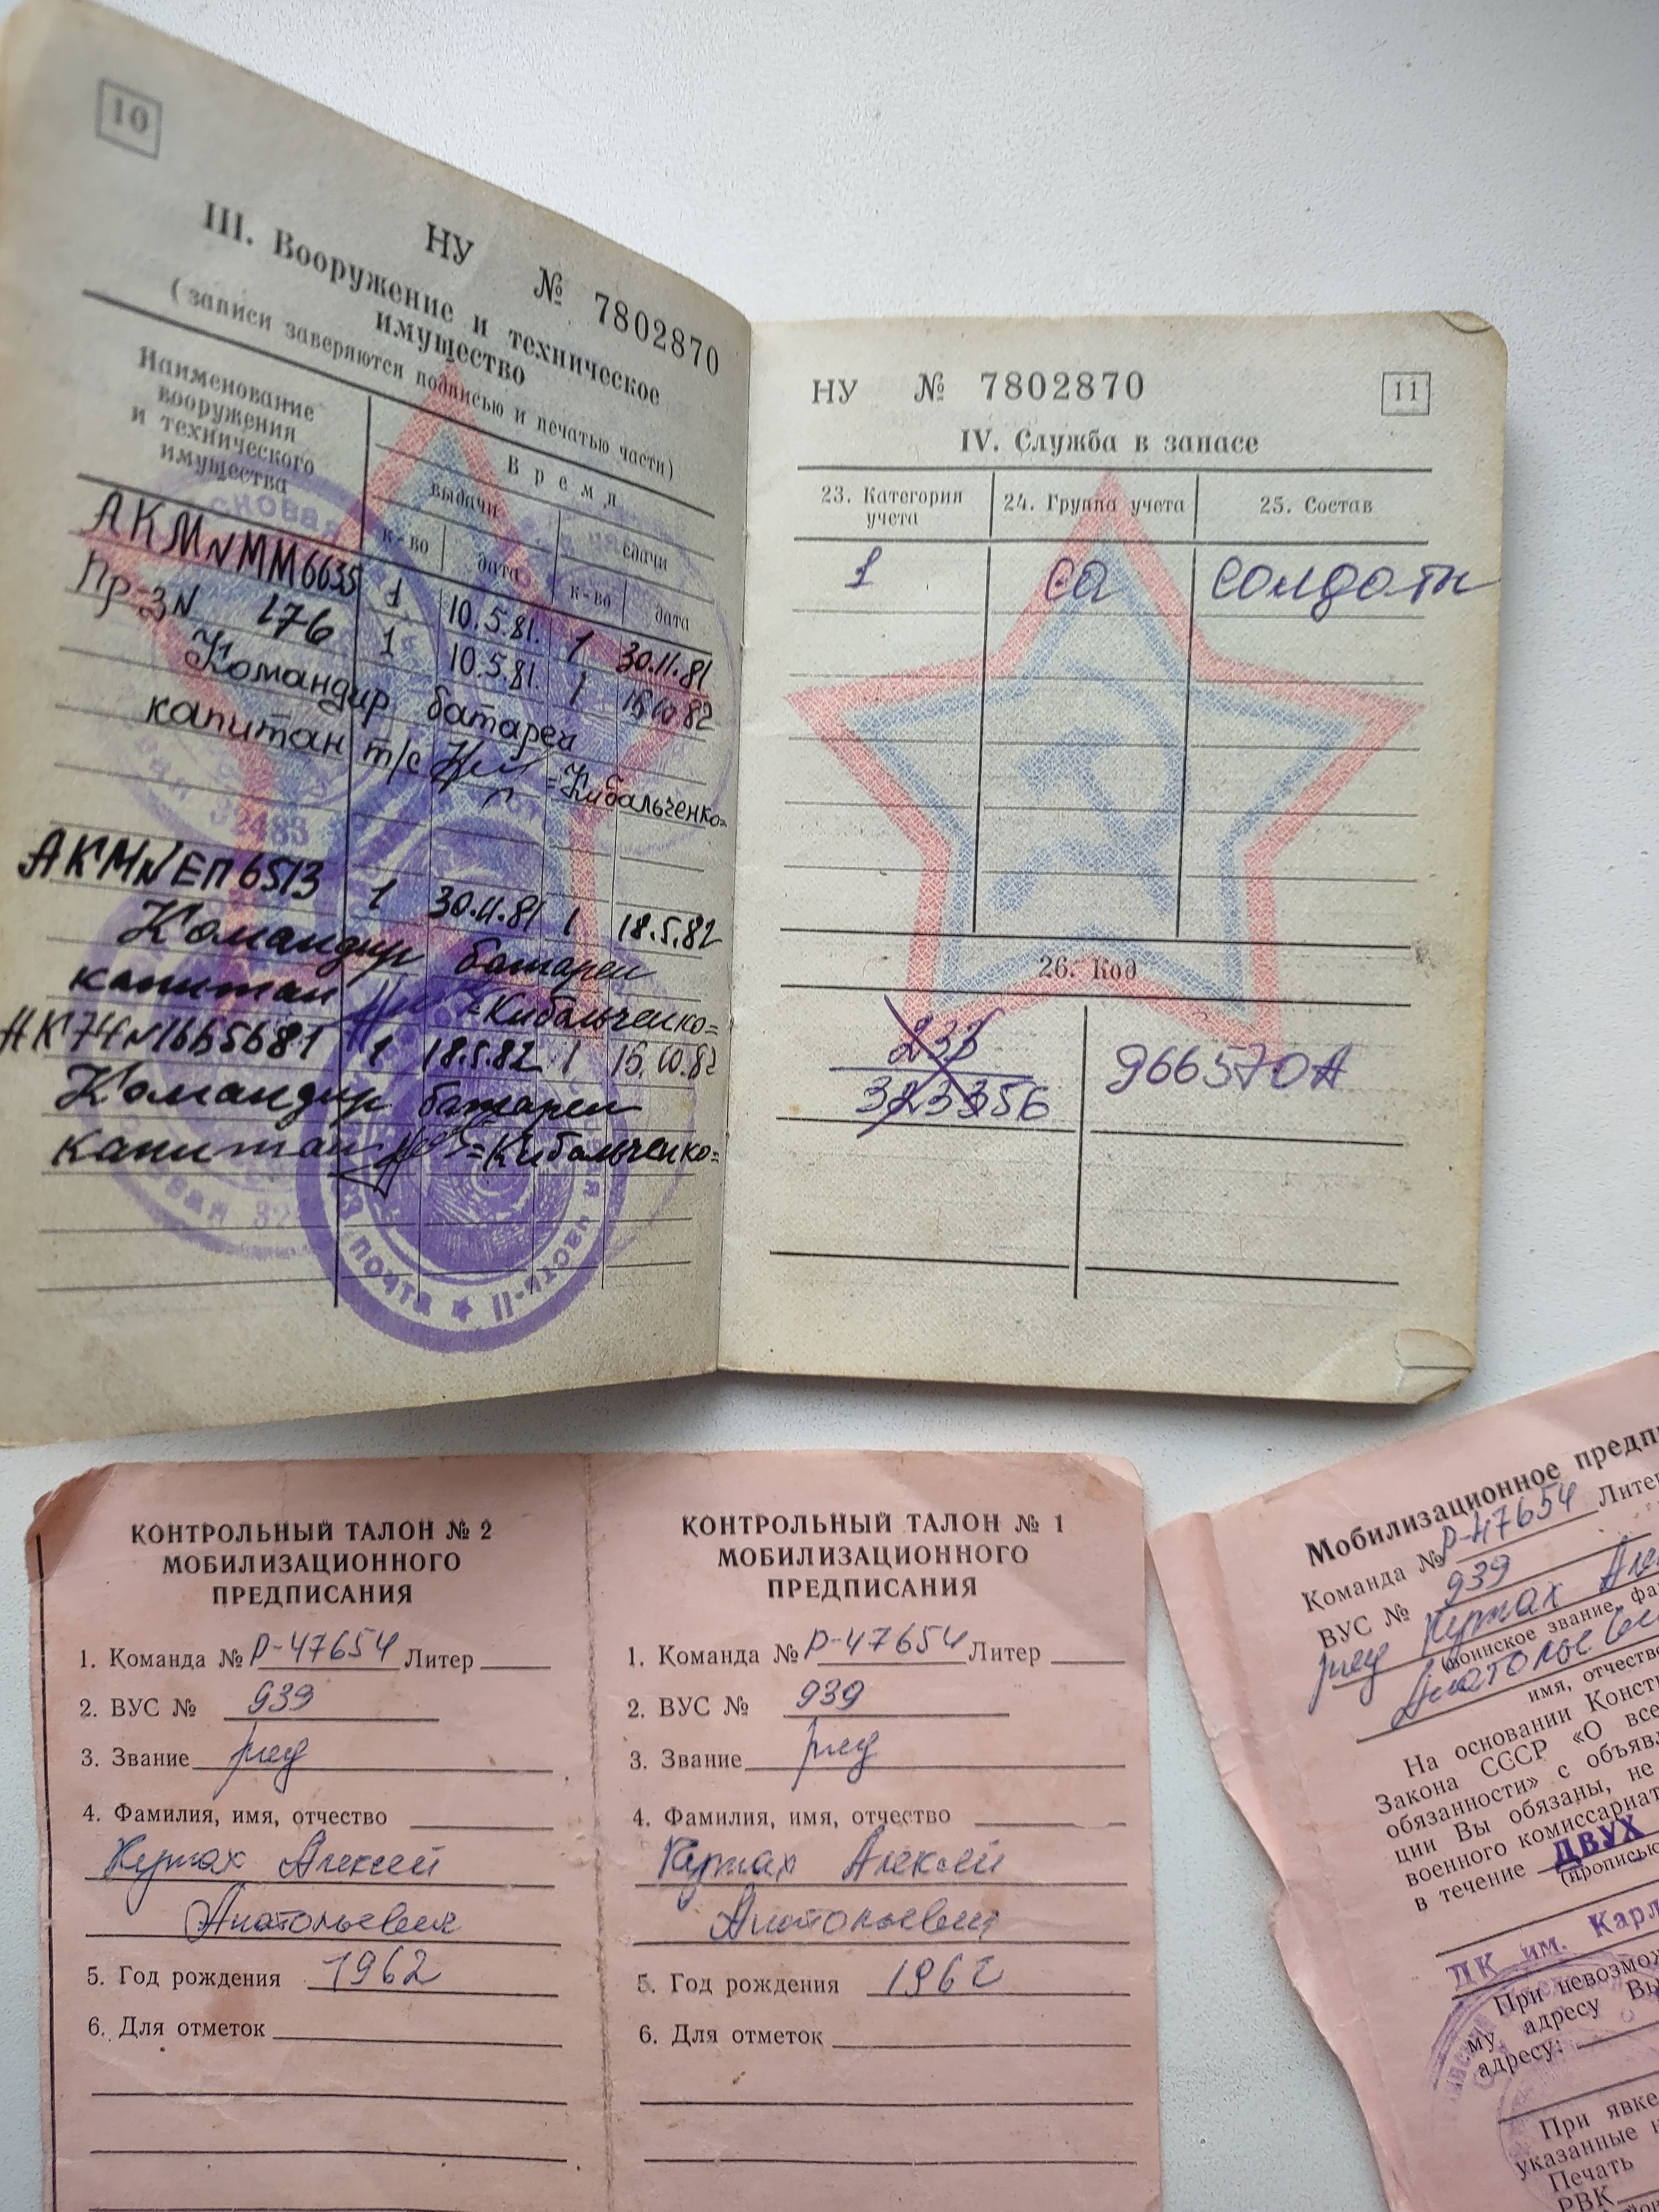 10
НУ № 7802870
III. Вооружение и техническое
имущество
(записи заверяются подписью и печатью части)
Наименование
вооружения
и технического
имущества
Время
выдачи
сдачи
к-во
дата
к-во
дата
АКМ N ММ6635 1 10.5.81. 1 30.11.81
Пр-3 N 176 1 10.5.81. 1 82
Командир батареи
капитан т/с =Кибальченко=
АКМ N ЕП6513 1 30.11.81 1 18.5.82
Командир батареи
капитан =Кибальченко=
АК74 N 1 18.5.82 1
Командир батареи
капитан =Кибальченко=
почта ★ II-часть
НУ № 7802870
11
IV. Служба в запасе
23. Категория
учета
24. Группа учета
25. Состав
1 са солдаты
26. Код
323356
966570А
КОНТРОЛЬНЫЙ ТАЛОН № 2
МОБИЛИЗАЦИОННОГО
ПРЕДПИСАНИЯ
1. Команда № Р-47654 Литер
2. ВУС № 939
3. Звание ряд
4. Фамилия, имя, отчество
Куртах Алексей
Анатольевич
5. Год рождения 1962
6. Для отметок
КОНТРОЛЬНЫЙ ТАЛОН № 1
МОБИЛИЗАЦИОННОГО
ПРЕДПИСАНИЯ
1. Команда № Р-47654 Литер
2. ВУС № 939
3. Звание ряд
4. Фамилия, имя, отчество
Куртах Алексей
Анатольевич
5. Год рождения 1962
6. Для отметок
Мобилизационное предпи
Команда № Р-47654 Литер
ВУС № 939
ряд Куртах Але
(воинское звание, фа
Анатольеви
имя, отчество
На основании Конст
Закона СССР «О все
обязанности» с объявл
ции Вы обязаны, не
военного комиссариат
в течение ДВУХ
(прописью
ДК им. Карл
При невозмож
му адресу Вы
адресу:
При явке
указанные
Печать
РВК